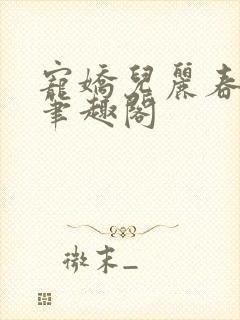 寵嬌兒麗春
筆趣閣
微末_